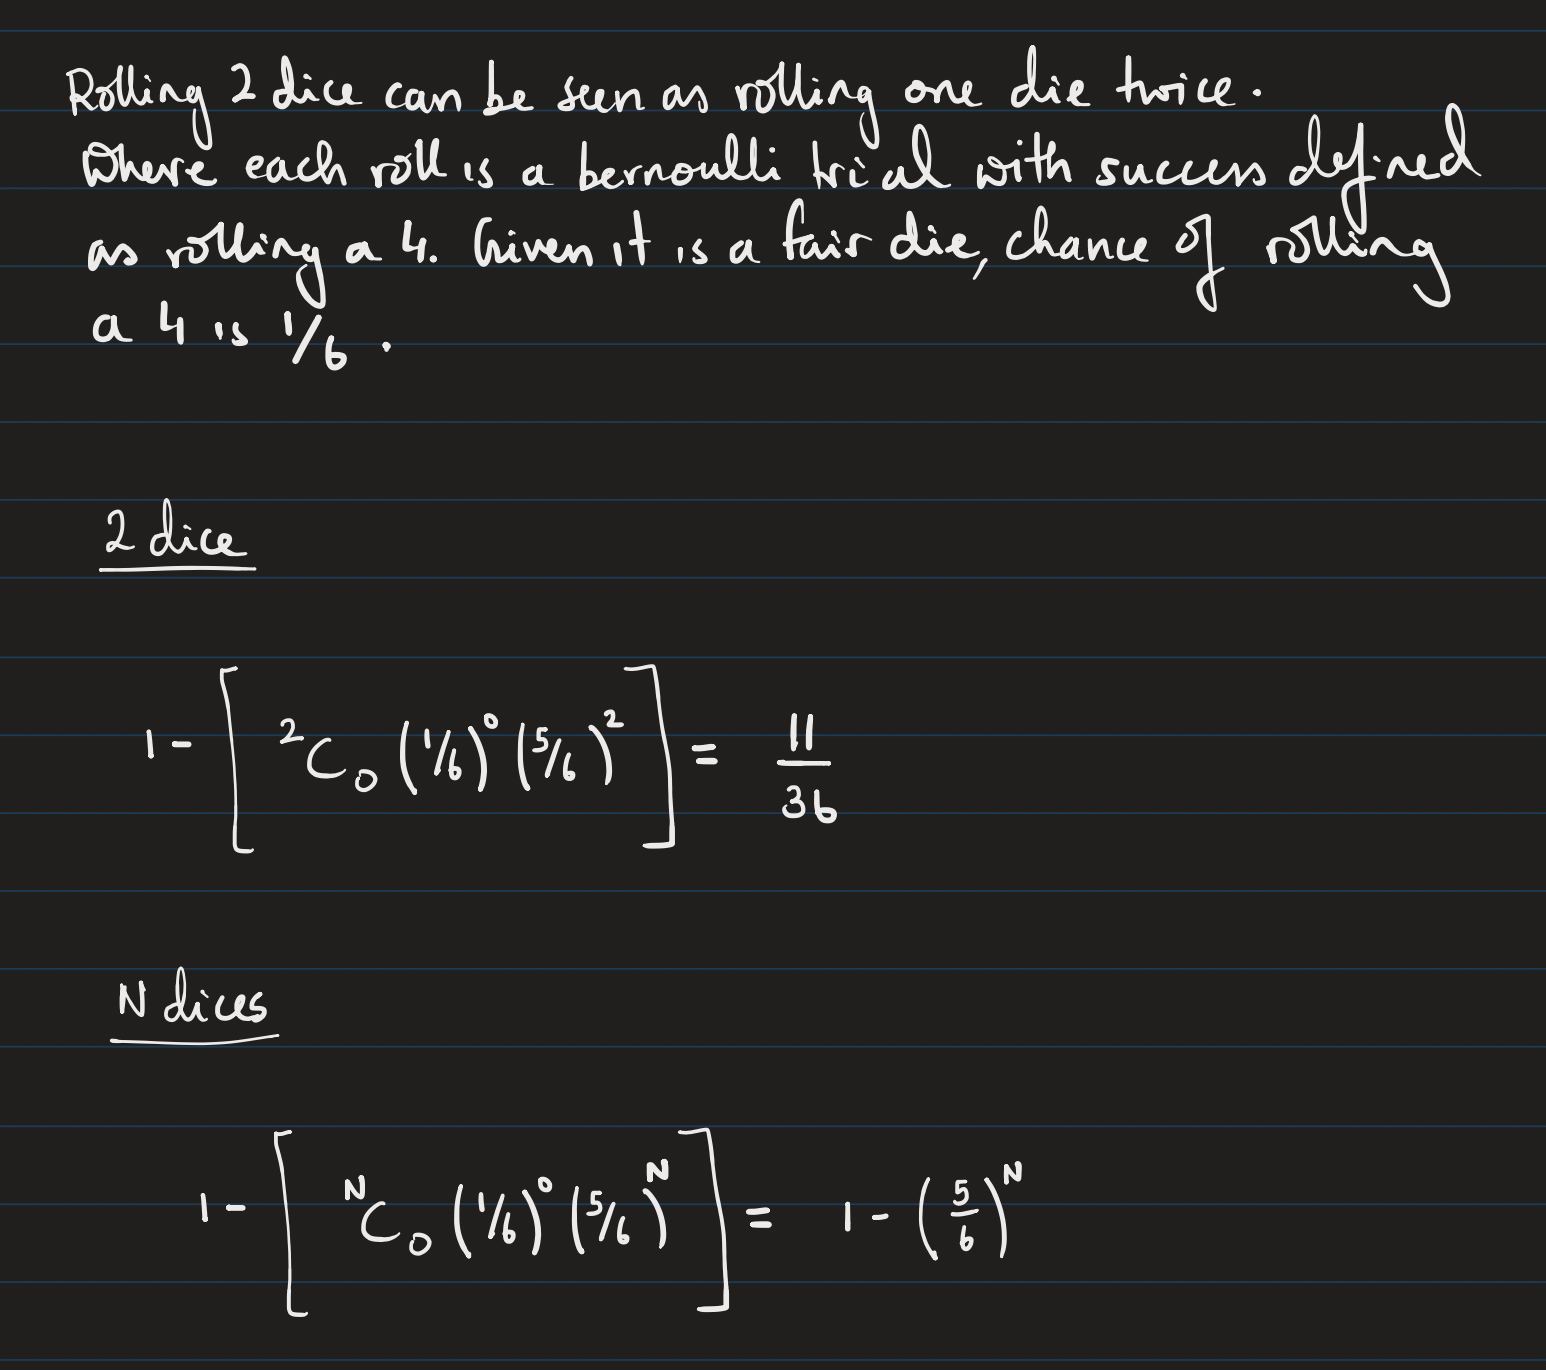 Rolling 2 dice can be seen as rolling one die twice.
Where each roll is a bernoulli trial with success defined
as rolling a 4. Given it is a fair die, chance of rolling
a 4 is 1/6.
2 dice
1 - [ ²C₀ (1/6)⁰ (5/6)² ] = 11/36
N dices
1 - [ ᴺC₀ (1/6)⁰ (5/6)ᴺ ] = 1 - (5/6)ᴺ